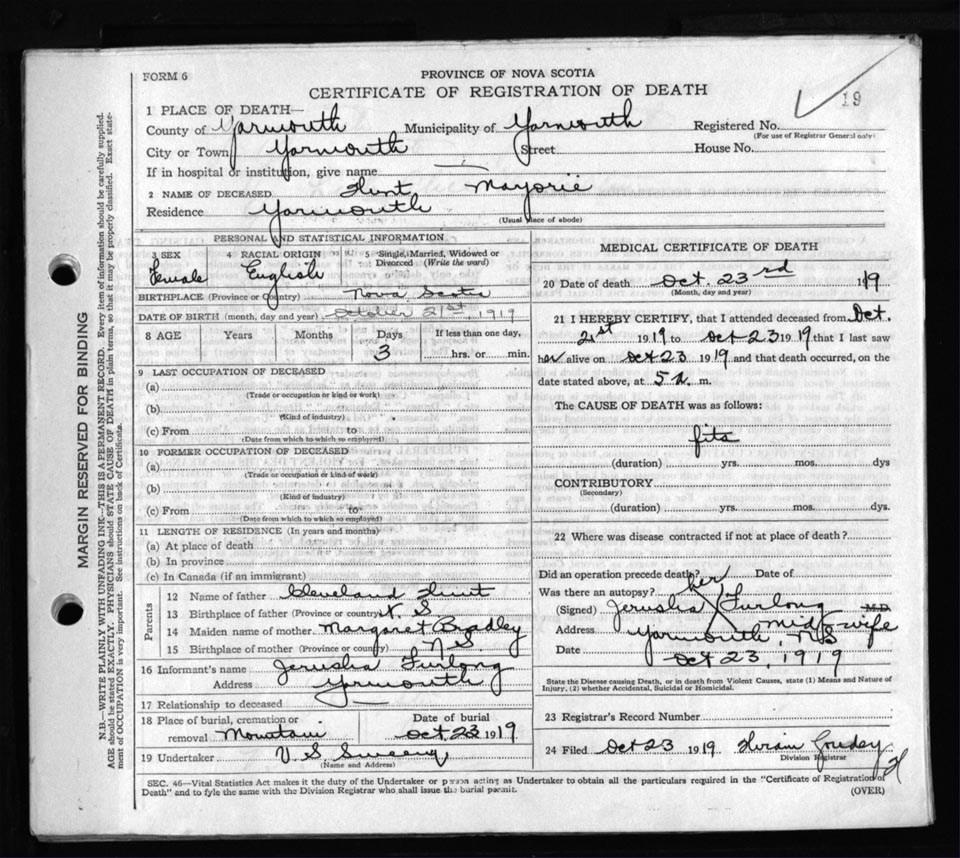 FORM 6
PROVINCE OF NOVA SCOTIA
CERTIFICATE OF REGISTRATION OF DEATH
19
1 PLACE OF DEATH—
County of Yarmouth Municipality of Yarmouth Registered No.
(For use of Registrar General only)
City or Town Yarmouth Street House No.
If in hospital or institution, give name —
2 NAME OF DECEASED Hunt Marjorie
Residence Yarmouth
(Usual place of abode)
PERSONAL AND STATISTICAL INFORMATION
3 SEX Female
4 RACIAL ORIGIN English
5 Single, Married, Widowed or Divorced (Write the word)
BIRTHPLACE (Province or Country) Nova Scotia
DATE OF BIRTH (month, day and year) October 21st, 1919
8 AGE Years Months Days If less than one day,
3 hrs. or min.
9 LAST OCCUPATION OF DECEASED
(a)
(Trade or occupation or kind of work)
(b)
(Kind of industry)
(c) From to
(Date from which to which so employed)
10 FORMER OCCUPATION OF DECEASED
(a)
(Trade or occupation or kind of work)
(b)
(Kind of industry)
(c) From to
(Date from which to which so employed)
11 LENGTH OF RESIDENCE (In years and months)
(a) At place of death
(b) In province
(c) In Canada (if an immigrant)
Parents
12 Name of father Cleveland Hunt
13 Birthplace of father (Province or country) N. S
14 Maiden name of mother Margaret Bradley
15 Birthplace of mother (Province or country) N. S.
16 Informant's name Jerusha Furlong
Address Yarmouth
17 Relationship to deceased
18 Place of burial, cremation or removal Mountain
Date of burial Oct, 23 1919
19 Undertaker V. S. Sweeny
(Name and Address)
MEDICAL CERTIFICATE OF DEATH
20 Date of death Oct. 23rd 1919
(Month, day and year)
21 I HEREBY CERTIFY, that I attended deceased from Oct.
21st 1919 to Oct 23 1919 that I last saw
her alive on Oct 23 1919 and that death occurred, on the
date stated above, at 5 m.
The CAUSE OF DEATH was as follows:
fits
(duration) yrs. mos. dys
CONTRIBUTORY
(Secondary)
(duration) yrs. mos. dys.
22 Where was disease contracted if not at place of death?
Did an operation precede death? Date of
Was there an autopsy? her
(Signed) Jerusha X Furlong M.D.
midwife
Address Yarmouth, N.S
Date Oct 23, 1919
State the Disease causing Death, or in death from Violent Causes, state (1) Means and Nature of
Injury, (2) whether Accidental, Suicidal or Homicidal.
23 Registrar's Record Number
24 Filed Oct 23 1919 Hiram Goudey
Division Registrar
SEC. 46—Vital Statistics Act makes it the duty of the Undertaker or person acting as Undertaker to obtain all the particulars required in the "Certificate of Registration of
Death" and to fyle the same with the Division Registrar who shall issue the burial permit.
(OVER)
MARGIN RESERVED FOR BINDING
N.B.—WRITE PLAINLY WITH UNFADING INK—THIS IS A PERMANENT RECORD. Every item of information should be carefully supplied.
AGE should be stated EXACTLY. PHYSICIANS should STATE CAUSE OF DEATH in plain terms, so that it may be properly classified. Exact state-
ment of OCCUPATION is very important. See instructions on back of Certificate.